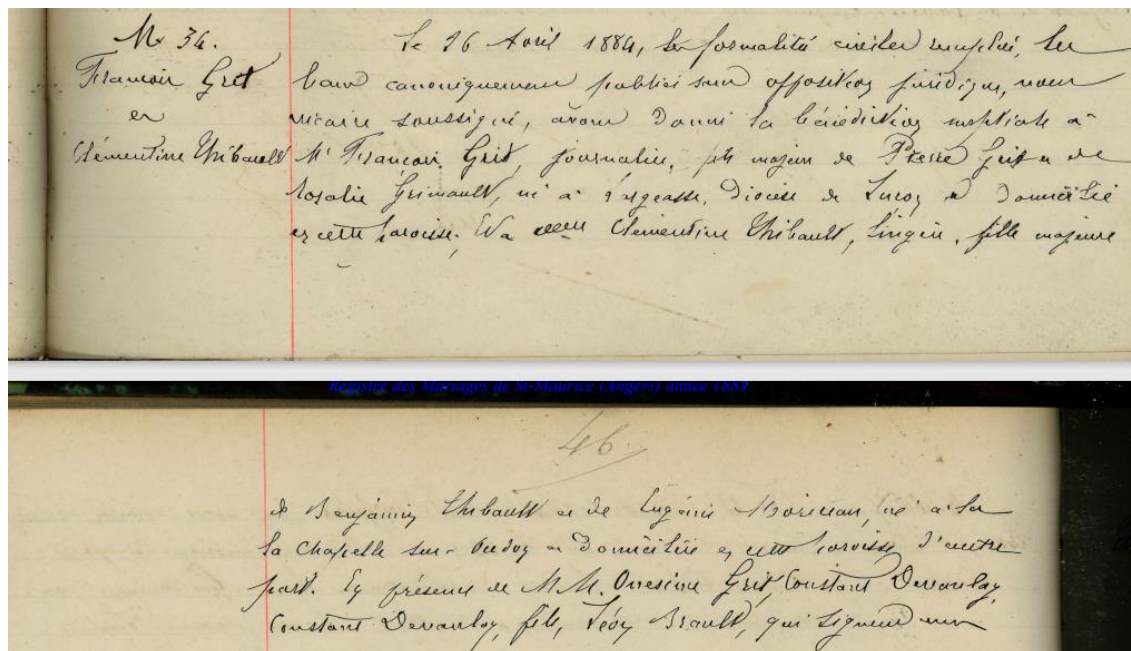 M 34.
François Grit
et
Clémentine Thibault
Le 26 Avril 1884, les formalités civiles remplies, les
bans canoniquement publiés sans opposition juridique, nous
vicaire soussigné, avons donné la bénédiction nuptiale à
Mr François Grit, journalier, fils majeur de Pierre Grit et de
Rosalie Grimault, né à Largeasse, Diocèse de Luçon et domicilié
en cette paroisse, Et à Clémentine Thibault, lingère, fille majeure
Registre des Mariages de St-Maurice (Angers) année 1884
46
de Benjamin Thibault et de Eugénie née à
la Chapelle sur- Oudon et domiciliée en cette paroisse d'autre
part. En présence de M.M. Onésime Grit, Constant Devaulay,
Constant Devaulay, fils, Lévy Brault, qui signent avec